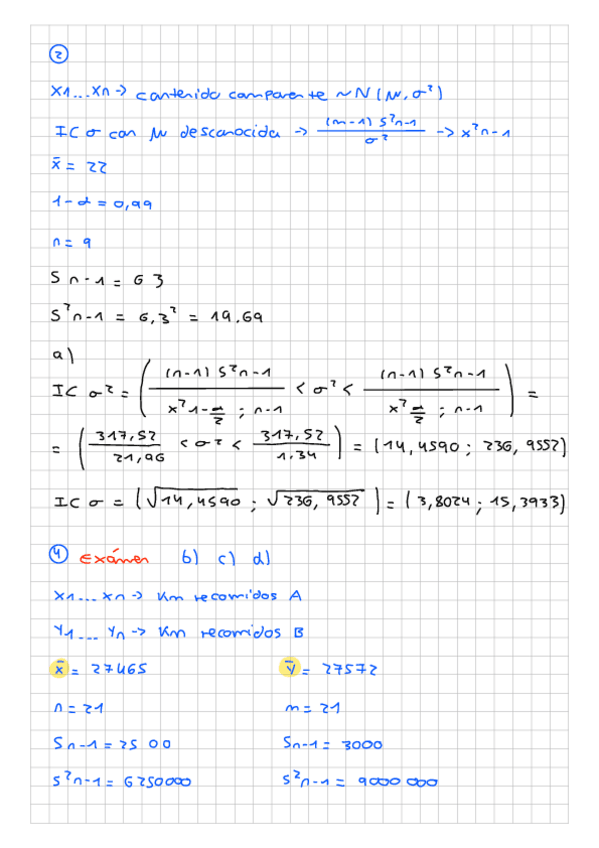 ②
X1...Xn → contenido componente ~ N(μ, σ²)
IC σ con μ desconocida → (n-1) S²n-1 / σ² → x²n-1
x̄ = 22
1-α = 0,99
n = 9
Sn-1 = 6 3
S²n-1 = 6,3² = 19.69
a)
IC σ² = ( (n-1) S²n-1 / x²1-α/2 ; n-1 < σ² < (n-1) S²n-1 / x²α/2 ; n-1 ) =
= ( 317,52 / 21,96 < σ² < 317,52 / 1.34 ) = (14,4590 ; 236,9552)
IC σ = (√14,4590 ; √236,9552) = (3,8024 ; 15,3933)
④ Exámen b) c) d)
X1...Xn → Km recorridos A
Y1...Yn → Km recorridos B
x̄ = 27465 ȳ = 27572
n = 21 m = 21
Sn-1 = 25 00 Sn-1 = 3000
S²n-1 = 6250000 S²n-1 = 9000 000